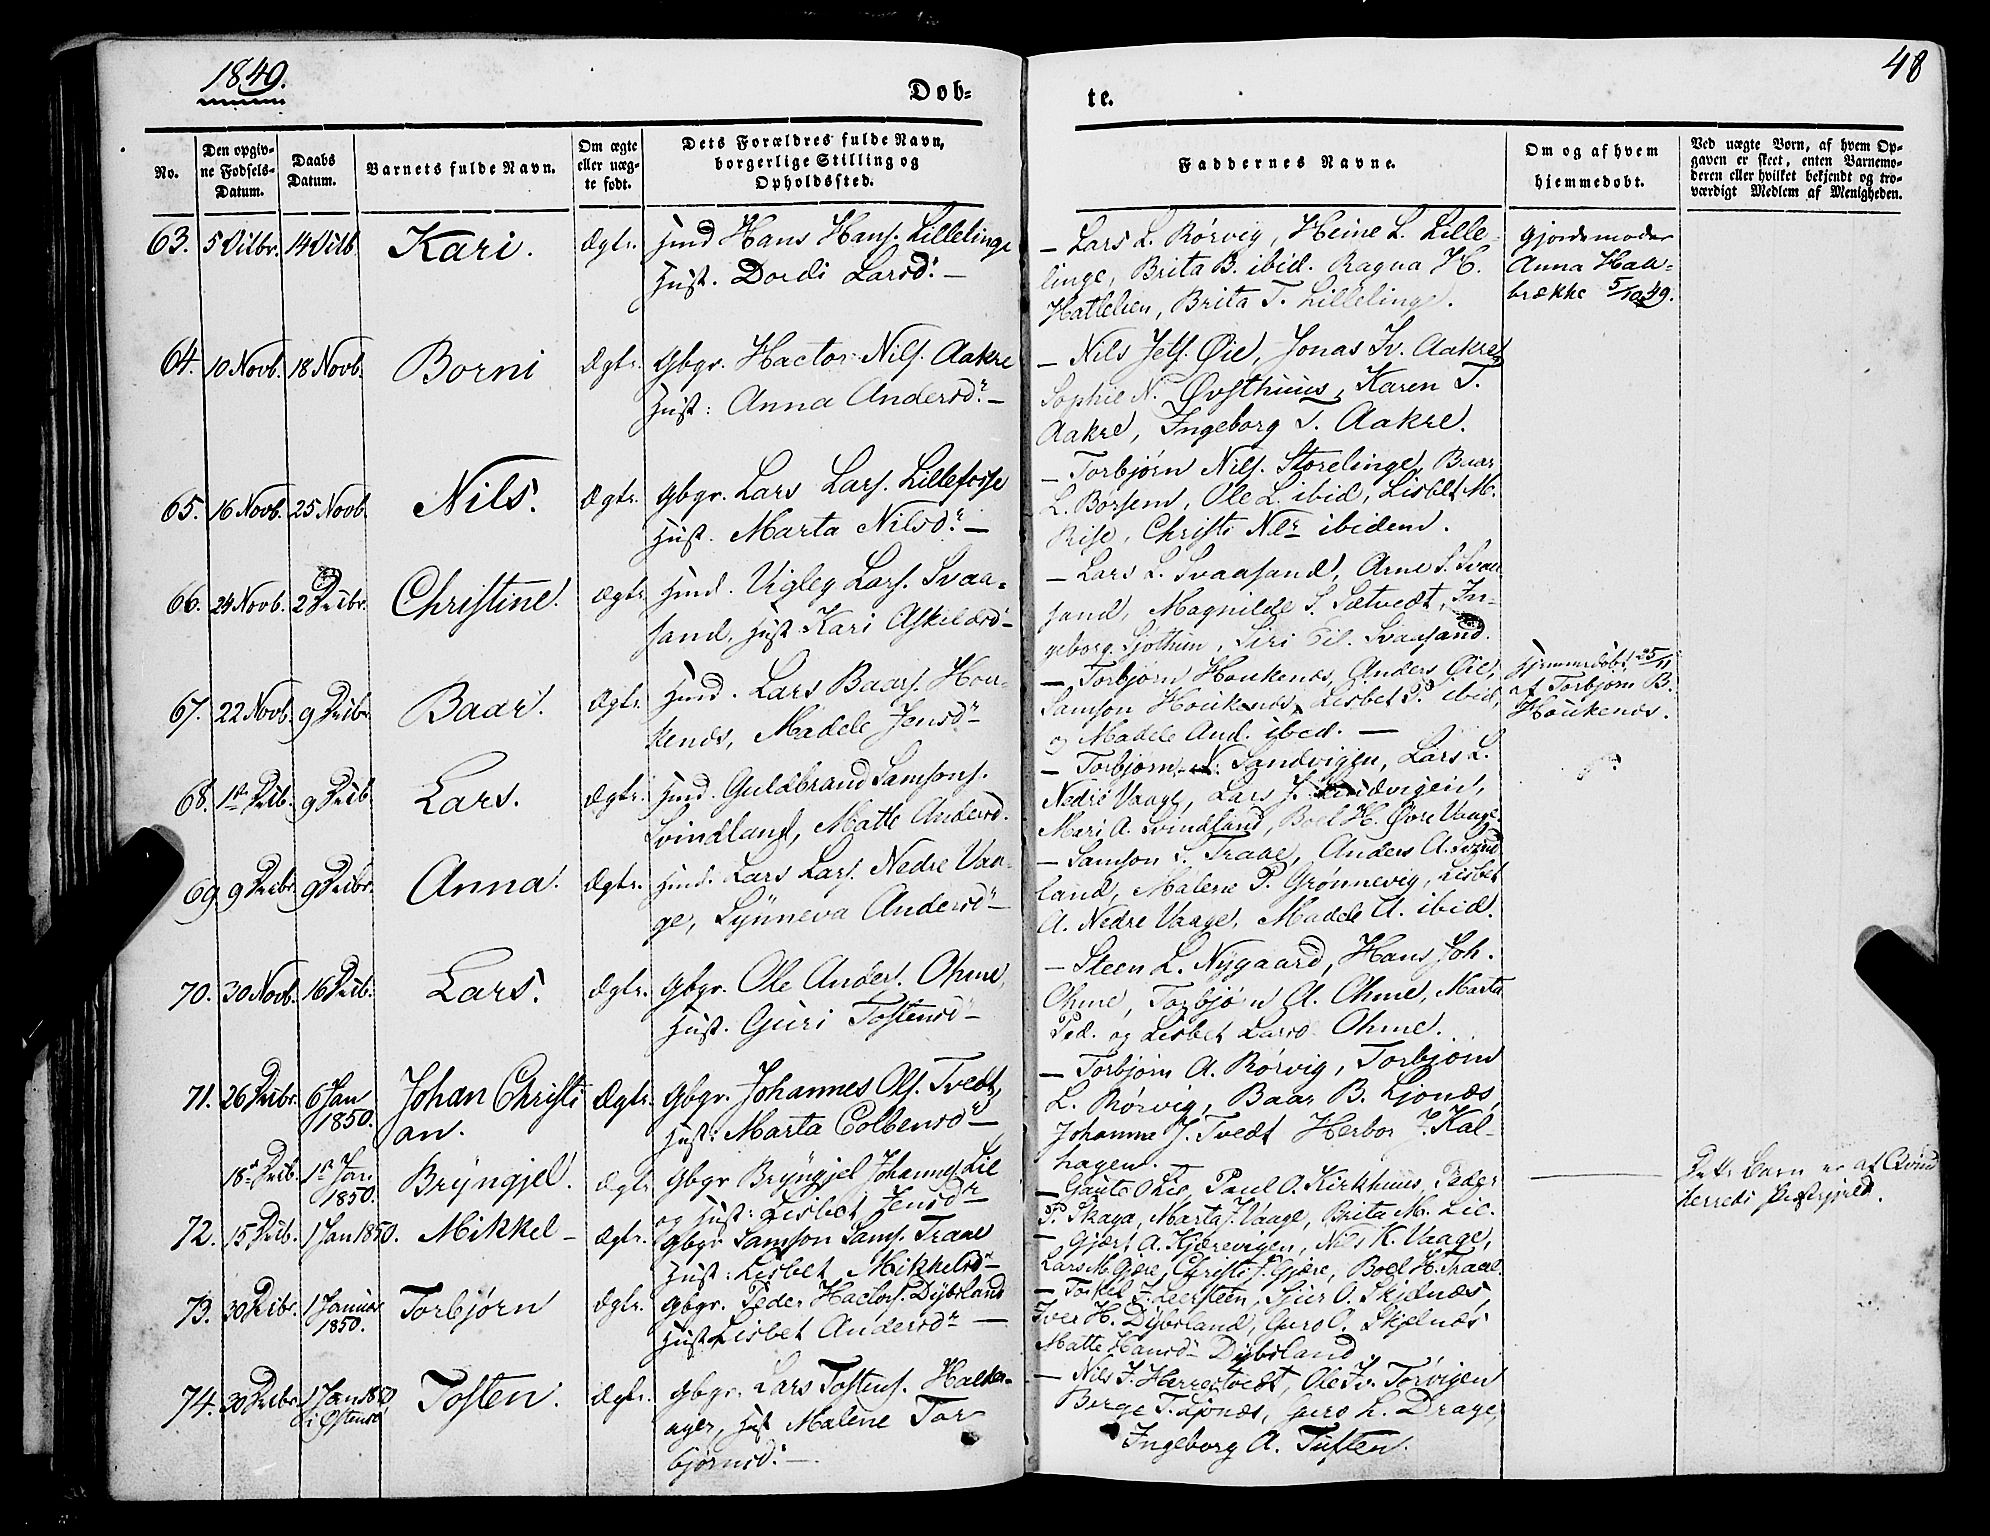 1849.
Dob-
te.
48
No.
Den opgiv-
ne Fødsels-
Datum.
Daabs
Datum.
Barnets fulde Navn.
Om ægte
eller uæg-
te født.
Dets Forældres fulde Navn,
borgerlige Stilling og
Opholdssted.
Faddernes Navne.
Om og af hvem
hjemmedøbt.
Ved uægte Børn, af hvem Op-
gaven er skeet, enten Barnemo-
deren eller hvilket bekjendt og tro-
værdigt Medlem af Menigheden.
63. 5 14 Kari. Ægte. Hmd Hans Hans. Lillelinge
Hust. Dordi Larsd. —
— Lars L. Rørvig, Heine L. Lille-
linge, Brita B. ibid. Ragna H.
Hatlelien, Brita T. Lillelinge.
Gjordemoder
Anna Haa-
brække 5/10 49.
64. 10 Novb. 18 Novb. Borni Ægte. Gbgr. Hactor Nils. Aakre
Hust: Anna Andersdr —
— Nils Øie, Jonas Iv. Aakre,
Sophie N. Øvsthuus, Karen T.
Aakre, Ingeborg T. Aakre.
65. 16 Novb. 25 Novb. Nils. Ægte. Gbgr. Lars Lars. Lillefosse
Hust. Marta Nilsdr —
— Torbjørn Nils. Storelinge, Baar
L. Børsem, Ole L. ibid, Lisbet M.
Rise, Christi ibidem.
66. 24 Novb. 2 Decbr. Christine. Ægte Hmd. Vigleg Lars. Svaa-
sand, Hust Kari Askildsd —
— Lars L. Svaasand, Arne S. Svaa
sand, Magnilde S. Sætvedt, In-
geborg Siri Svaasand.
67. 22 Novb. 9 Decbr Baar. Ægte. Hmd. Lars Baars. Hou-
kenæs, Madele Jensdr
— Torbjørn Houkenæs, Anders Øie,
Samson Houkenæs, Lisbet P. ibid,
og Madele And. ibid. —
Hjemmedøbt 25/11
af Torbjørn B.
Houkenæs.
68. 1ste Decb. 9 Decb. Lars. Ægte. Hmd. Guldbrand Samsons.
Svindland, Matte Andersd.
— Torbjørn N. Sandvigen, Lars L.
Nedre Vaage, Lars J. Sandvigen,
Mari A. Svindland, Boel H. Øvre Vaage.
69. 9 Decbr. 9 Decbr. Anna. Ægte. Hmd. Lars Lars. Nedre Vaa-
ge, Synneva Andersd —
— Samson S. Traae, Anders A. Svind
land, Malene P. Grønnevig, Lisbet
A. Nedre Vaage, Madele A. ibid.
70. 30 Novb. 16 Decb. Lars. Ægte. Gbgr. Ole Anders. Ohme,
Hust. Guri Tostensd —
— Steen L. Nygaard, Hans Joh.
Ohme, Torbjørn A. Ohme, Marta
Ped. og Lisbet Larsd Ohme.
71. 26 Decbr. 6 Jan
1850. Johan Christi
an. Ægte. Gbgr. Johannes Ols. Tvedt,
Hust: Marta Colbensd —
— Torbjørn A. Rørvig, Torbjørn
L. Rørvig, Baar B. Ljonæs,
Johanna J. Tvedt Herbor J. Kal-
hagen.
18de Decb. 1ste Jan
1850. Bryngjel. Ægte Gbgr Bryngjel Johannes. Lie
og Hust: Lisbet Jensdr
— Gaute O Lie, Paul O. Kirkhuus, Peder
P. Skaga, Marta J. Vaage, Brita M. Lie.
Dette Barn er af Qvind
herreds Præstegjeld.
72. 15 Decb. 1 Jan 1850. Mikkel — Ægte. Gbgr Samson Sams. Traae
Hust: Lisbet Mikkelsd —
— Gjert A. Kjærevigen, Nils K. Vaage,
Lars M. Gjære, Christi J. Gjære, Boel H. Traae.
73. 30 Decbr. 1 Januar
1850. Torbjørn Ægte. Gbgr. Peder Hactors. Dybsland
Hust Lisbet Andersdr —
— Torkel Sjur O. Skjelnæs,
Iver H. Dybsland, Guro O. Skjelnæs
Matte Hansd — Dybsland.
74. 30 Decbr. 1 Jan 1850
i Østensø Tosten. Ægte. Gbgr. Lars Tostens. Halder-
ager, Hust Malene Tor-
bjørnsd. —.
— Nils J. Herrestvedt, Ole Iv. Tørvigen
Børge T. Ljonæs, Guro L. Drage,
Ingeborg A. Tuften.